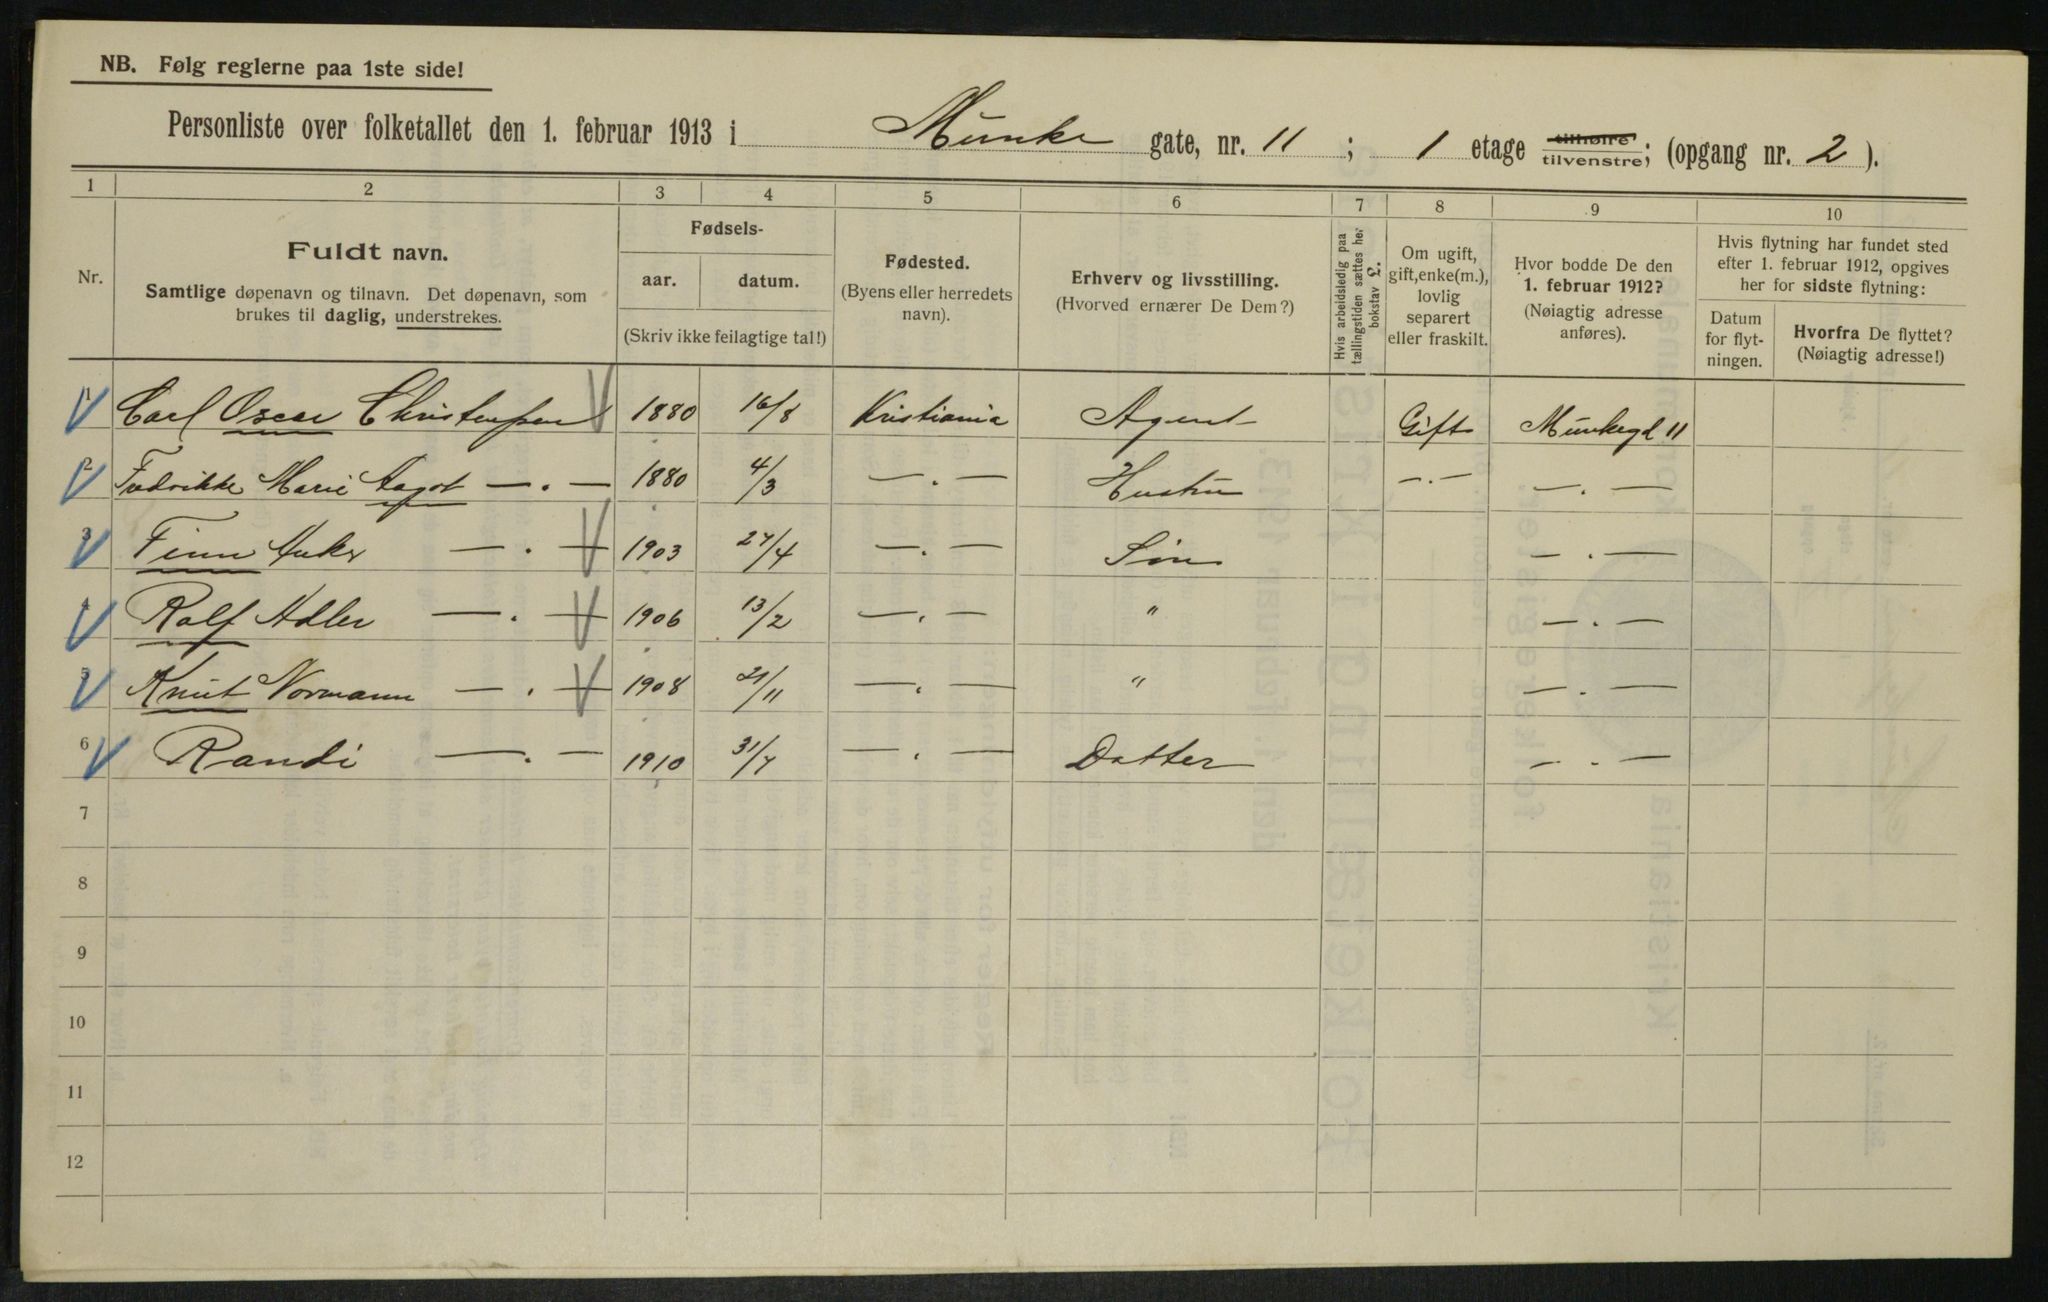 NB. Følg reglerne paa 1ste side!
Personliste over folketallet den 1. februar 1913 i Munke gate, nr. 11 ; 1 etage tilhøire tilvenstre; (opgang nr. 2 ).
1 2 3 4 5 6 7 8 9 10
Nr.
Fuldt navn.
Samtlige døpenavn og tilnavn. Det døpenavn, som
brukes til daglig, understrekes.
Fødsels-
aar. datum.
(Skriv ikke feilagtige tal!)
Fødested.
(Byens eller herredets
navn).
Erhverv og livsstilling.
(Hvorved ernærer De Dem?)
Hvis arbeidsledig paa
tællingstiden sættes her
bokstav L.
Om ugift,
gift, enke(m.),
lovlig
separert
eller fraskilt.
Hvor bodde De den
1. februar 1912?
(Nøiagtig adresse
anføres).
Hvis flytning har fundet sted
efter 1. februar 1912, opgives
her for sidste flytning:
Datum
for flyt-
ningen.
Hvorfra De flyttet?
(Nøiagtig adresse!)
1 Carl Oscar Christensen 1880 16/8 Kristiania Agent Gift Munkegd 11
2 Fredrikke Marie Aagot — . — 1880 4/3 — . — Hustru — . — — . —
3 Finn Anker — . — 1903 27/4 — . — Søn — . —
4 Rolf Adler — . — 1906 13/2 — . — " — . —
5 Knut Normann — . — 1908 21/11 — . — " — . —
6 Randi — . — 1910 31/7 — . — Datter — . —
7
8
9
10
11
12